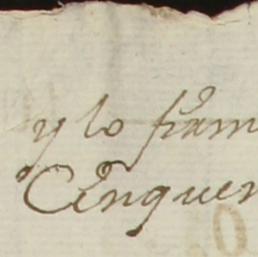 y lo firm
Cinquen